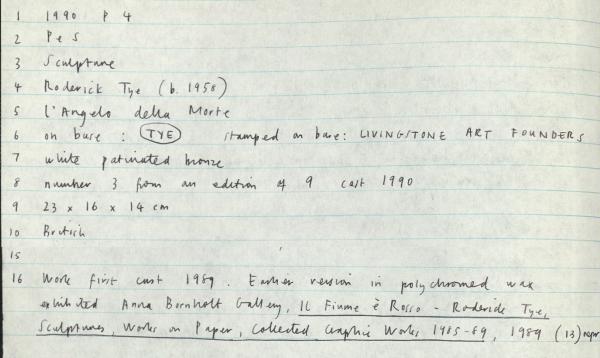 1 1990 P 4
2 P e S
3 Sculpture
4 Roderick Tye (b. 1958)
5 l'Angelo della Morte
6 on base : TYE stamped on base: LIVINGSTONE ART FOUNDERS
7 white patinated bronze
8 number 3 from an edition of 9 cast 1990
9 23 x 16 x 14 cm
10 British
15
16 Work first cast 1989. Earlier version in polychromed wax
exhibited Anna Bornholt Gallery, Il Fiume è Rosso - Roderick Tye,
Sculptures, Works on Paper, Collected Graphic Works 1985-89, 1989 (13) repr